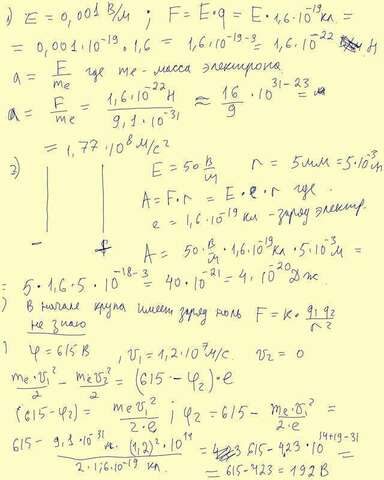 1) E = 0,001 В/м ; F = E·q = E·1,6·10⁻¹⁹ кл. =
= 0,001·10⁻¹⁹·1,6 = 1,6·10⁻¹⁹⁻³ = 1,6·10⁻²² Н
a = F/me где me - масса электрона
a = F/me = 1,6·10⁻²² Н / 9,1·10⁻³¹ ≈ 16/9 · 10³¹⁻²³ =
= 1,77·10⁸ м/с²
2) E = 50 В/м r = 5 мм = 5·10⁻³ м
A = F·r = E·e·r где
e = 1,6·10⁻¹⁹ кл - заряд электр.
- +
A = 50·В/м·1,6·10⁻¹⁹ кл·5·10⁻³ м =
= 5·1,6·5·10⁻¹⁸⁻³ = 40·10⁻²¹ = 4·10⁻²⁰ Дж.
) В начале крупа имеет заряд ноль F = к·q₁q₂/r²
не знаю
) φ = 615 В , v₁ = 1,2·10⁷ м/с. v₂ = 0
me·v₁²/2 - me·v₂²/2 = (615 - φ₂)·e
(615 - φ₂) = me·v₁²/2·e ; φ₂ = 615 - me·v₁²/2·e =
615 - 9,1·10⁻³¹ кг·(1,2)²·10¹⁴ / 2·1,6·10⁻¹⁹ кл. = 615 - 423·10¹⁴⁺¹⁹⁻³¹
= 615 - 423 = 192 В